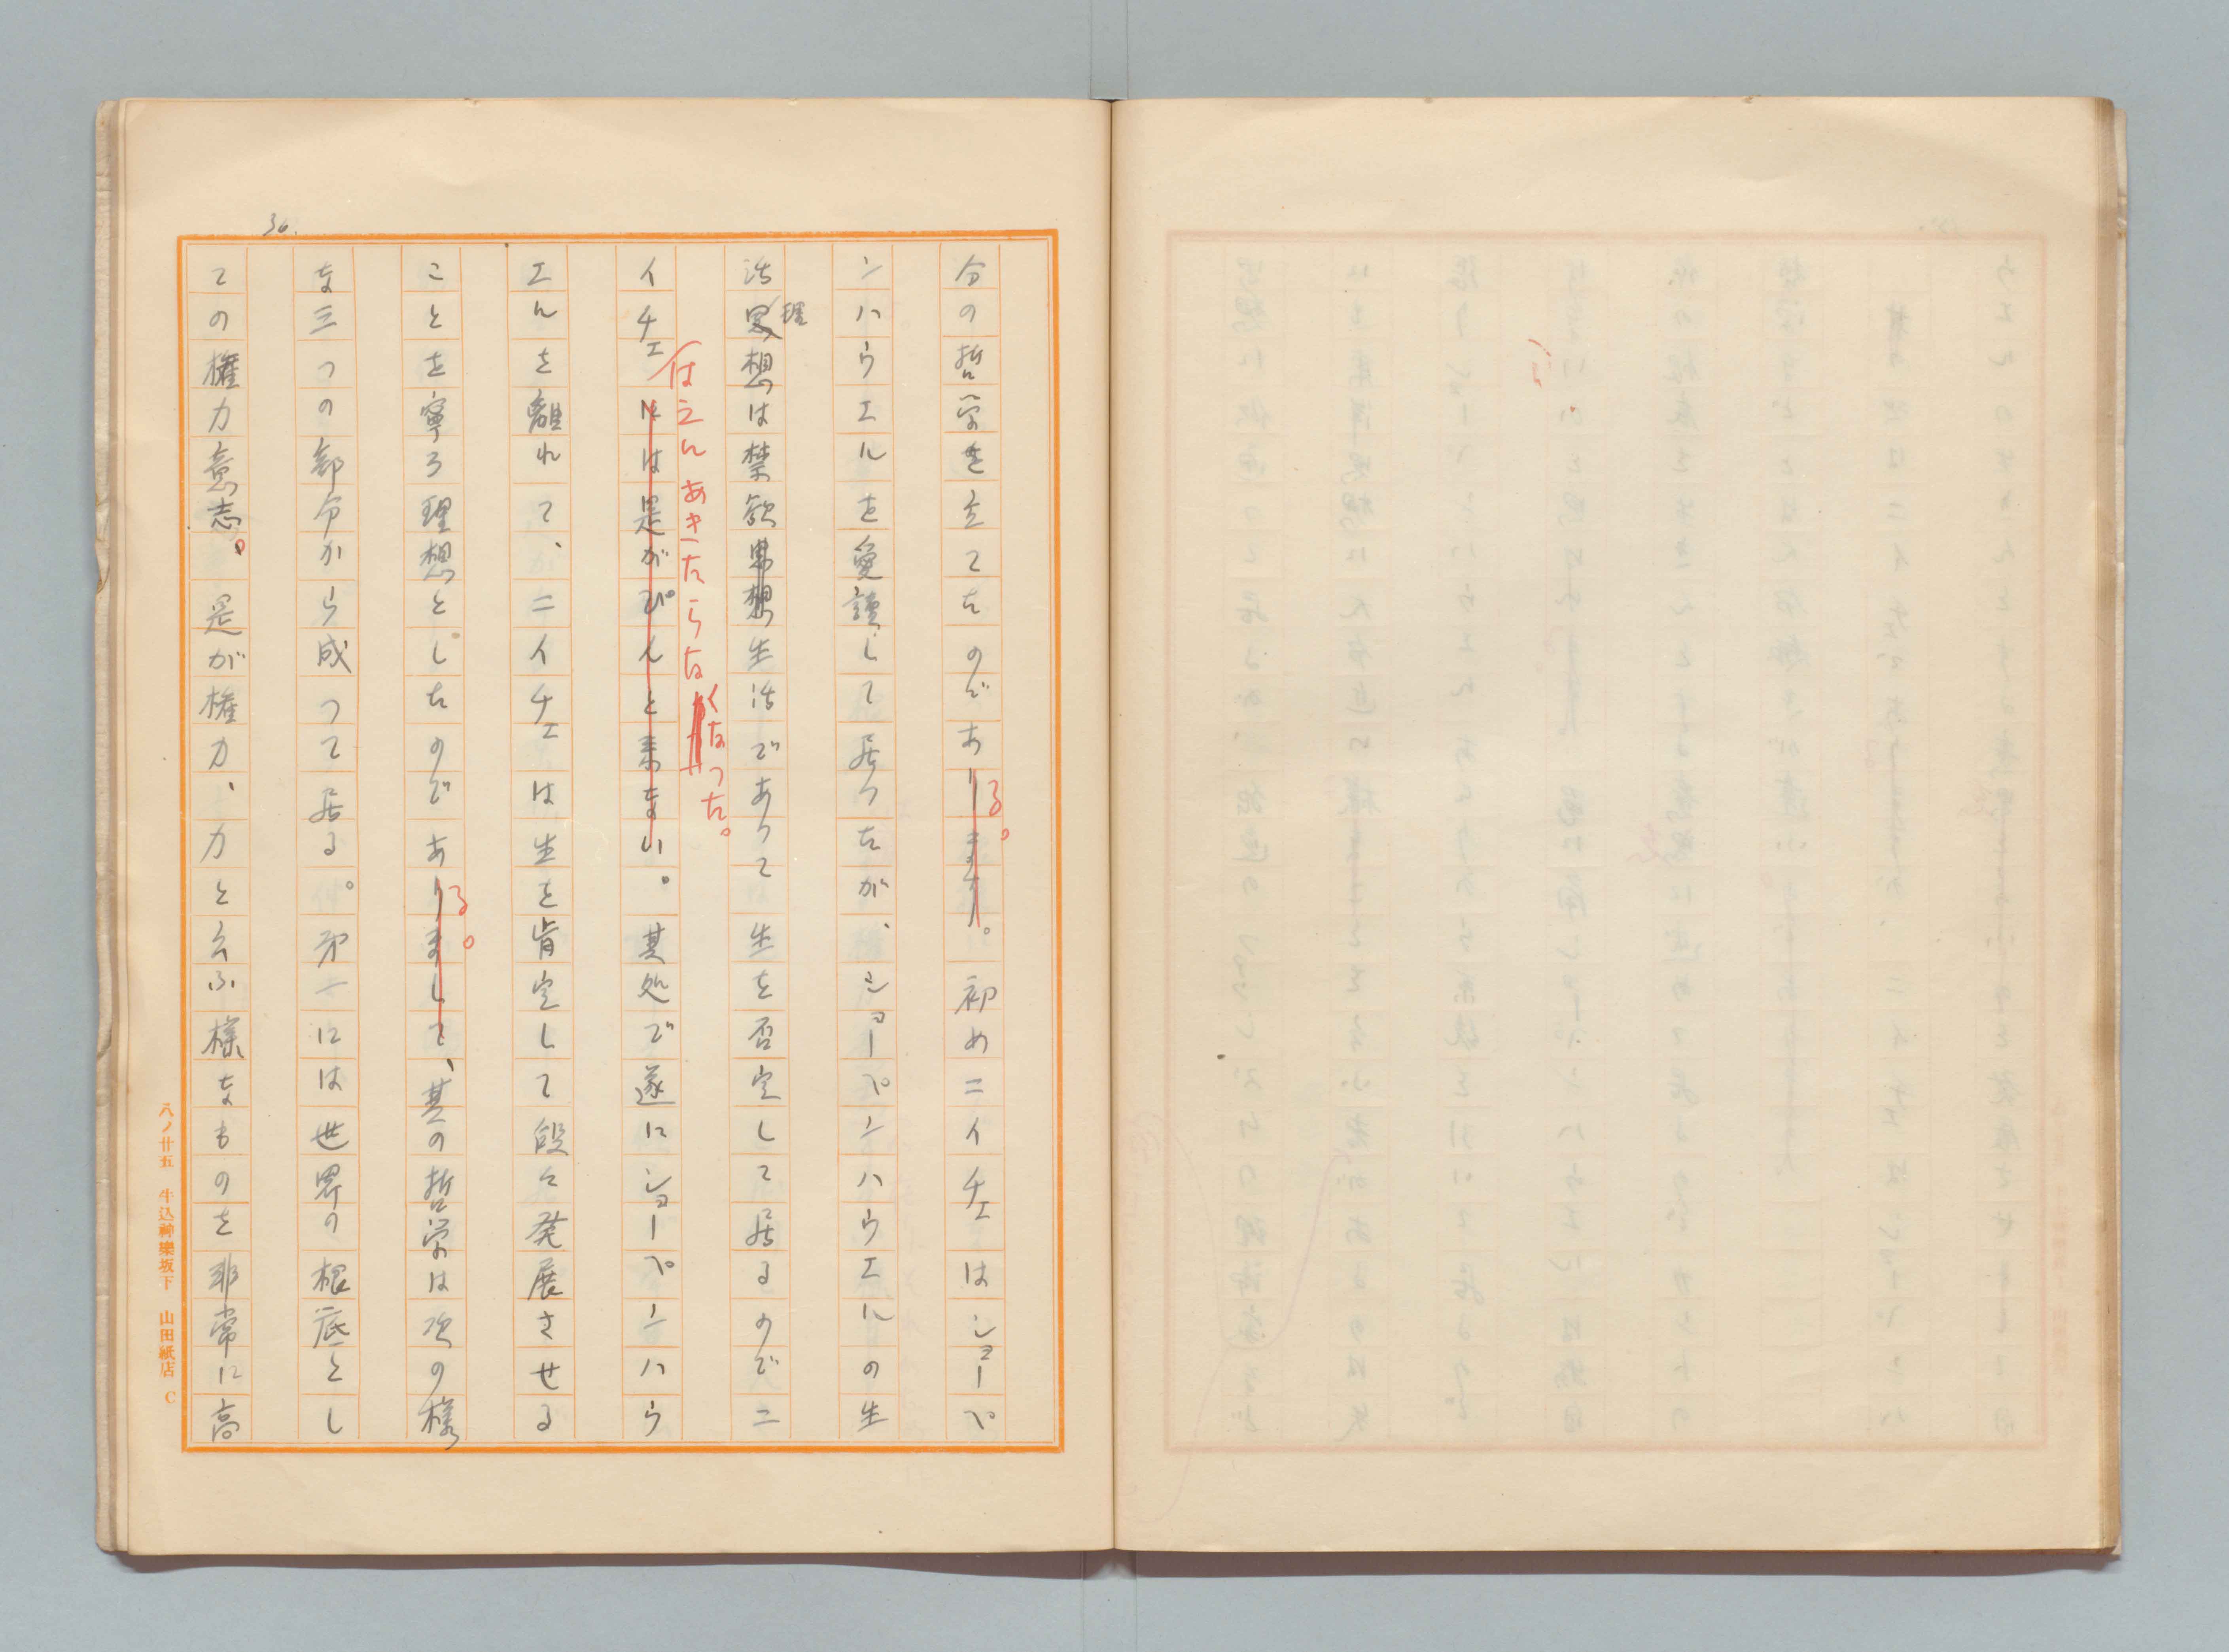 36.
分の哲学を立てたのであります。初めニイチェはショーペ
る。
ンハウエルを愛読して居つたが、ショーペンハウエルの生
活思想は禁欲思想生活であつて生を否定して居るのでニ
理
は之にあきたらなくなつた。
イチェには是がぴんと来ない。其処で遂にショーペンハウ
エルを離れて、ニイチェは生を肯定して段々発展させる
ことを寧ろ理想としたのでありまして、其の哲学は次の様
る。
な三つの部分から成つて居る。第一には世界の根底とし
ての権力意志。是が権力、力と云ふ様なものを非常に高
八ノ廿五 牛込神樂坂下 山田紙店 C